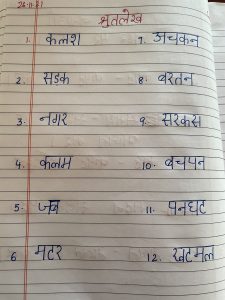 26.11.21
श्रुतलेख
1. कलश 7. अचकन
2. सडक 8. बरतन
3. नगर 9. सरकस
4. कलम 10. बचपन
5. जब 11. पनघट
6 मटर 12. खटमल